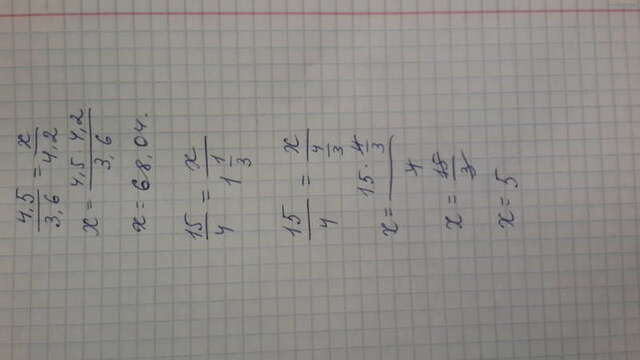 4,5/3,6 = x/4,2
x = 4,5 4,2/3,6
x = 68,04.
15/4 = x/1 1/3
15/4 = x/4/3
x = 15 · 4/3/4
x = 15/3
x = 5